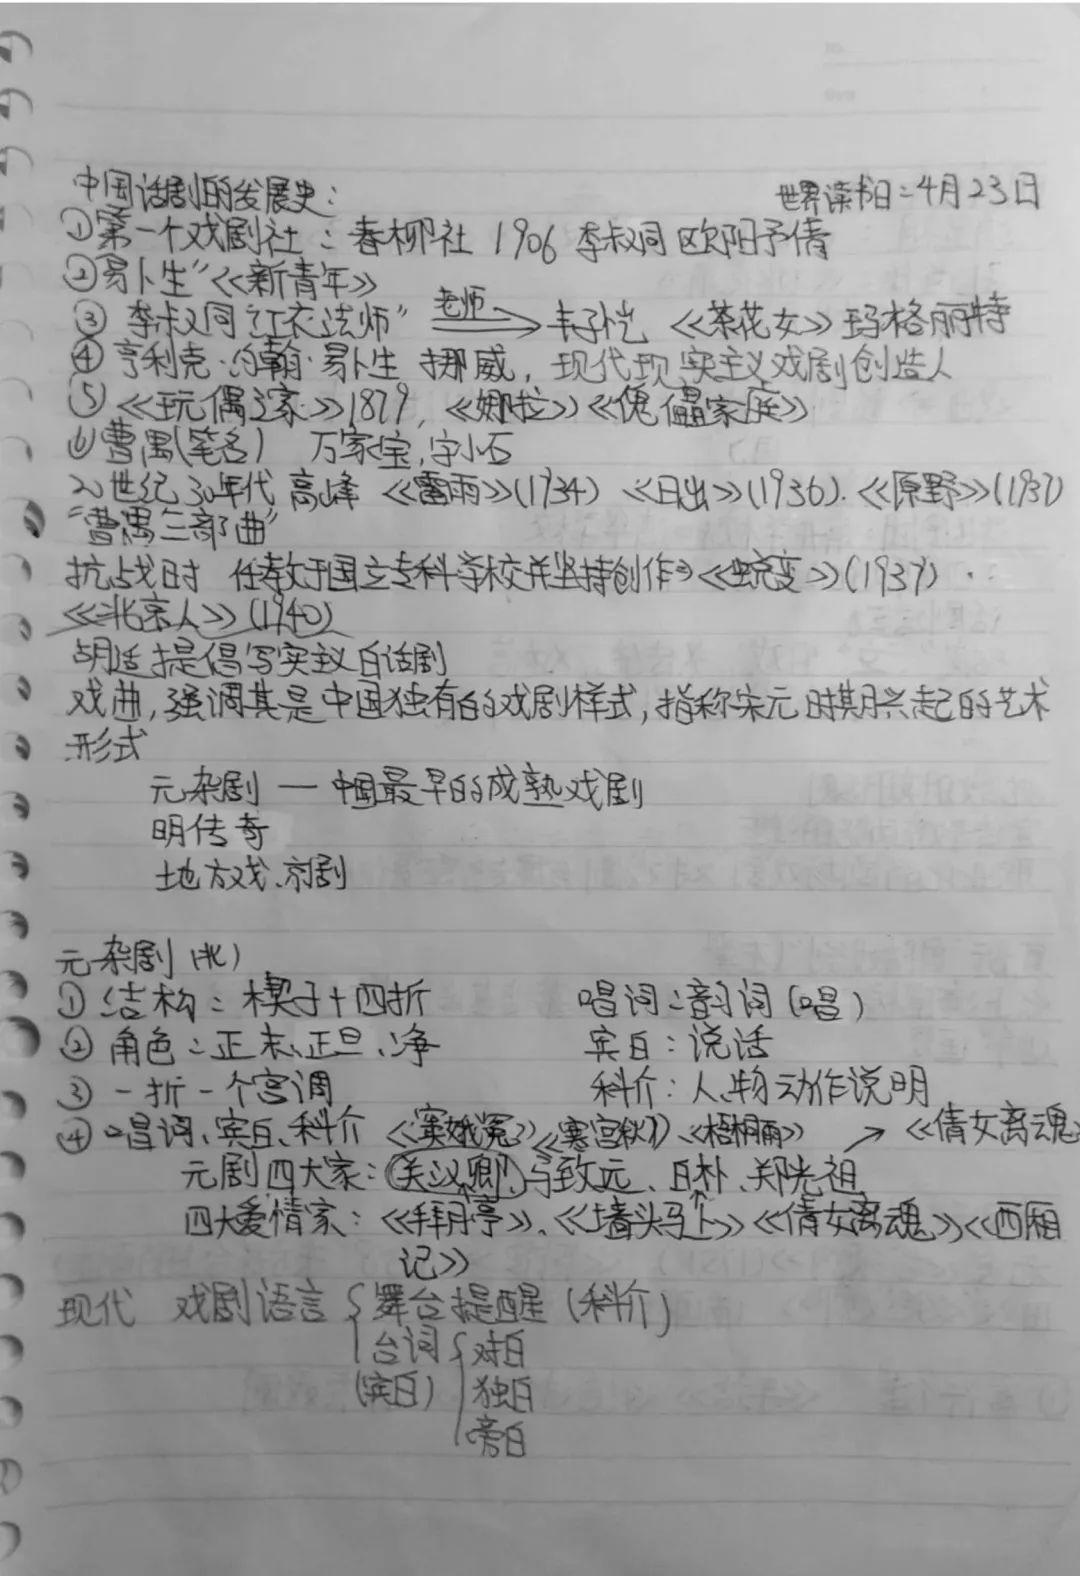 中国话剧的发展史：
世界读书日：4月23日
①第一个戏剧社：春柳社 1906 李叔同 欧阳予倩
②易卜生"《新青年》
③ 李叔同"红衣法师" 老师 → 丰子恺 《茶花女》玛格丽特
④ 亨利克·约翰·易卜生 挪威，现代现实主义戏剧创造人
⑤《玩偶之家》1879 《娜拉》《傀儡家庭》
⑥曹禺(笔名) 万家宝，字小石
20世纪30年代 高峰 《雷雨》(1934) 《日出》(1936)、《原野》(1937)
"曹禺三部曲"
抗战时 任教于国立专科学校并坚持创作→《蜕变》(1939)、
《北京人》(1940)
胡适提倡写实主义白话剧
戏曲，强调其是中国独有的戏剧样式，指称宋元时期兴起的艺术
形式
元杂剧 — 中国最早的成熟戏剧
明传奇
地方戏、京剧
元杂剧(北)
① 结构：楔子+四折 唱词：韵词(唱)
② 角色：正末、正旦、净 宾白：说话
③ 一折一个宫调 科介：人物动作说明
④ 唱词、宾白、科介 《窦娥冤》《汉宫秋》、《梧桐雨》 → 《倩女离魂》
元剧四大家：关汉卿、马致远、白朴、郑光祖
四大爱情家：《拜月亭》、《墙头马上》《倩女离魂》《西厢
记》
现代 戏剧语言 { 舞台提醒(科介)
台词 { 对白
(宾白) 独白
旁白